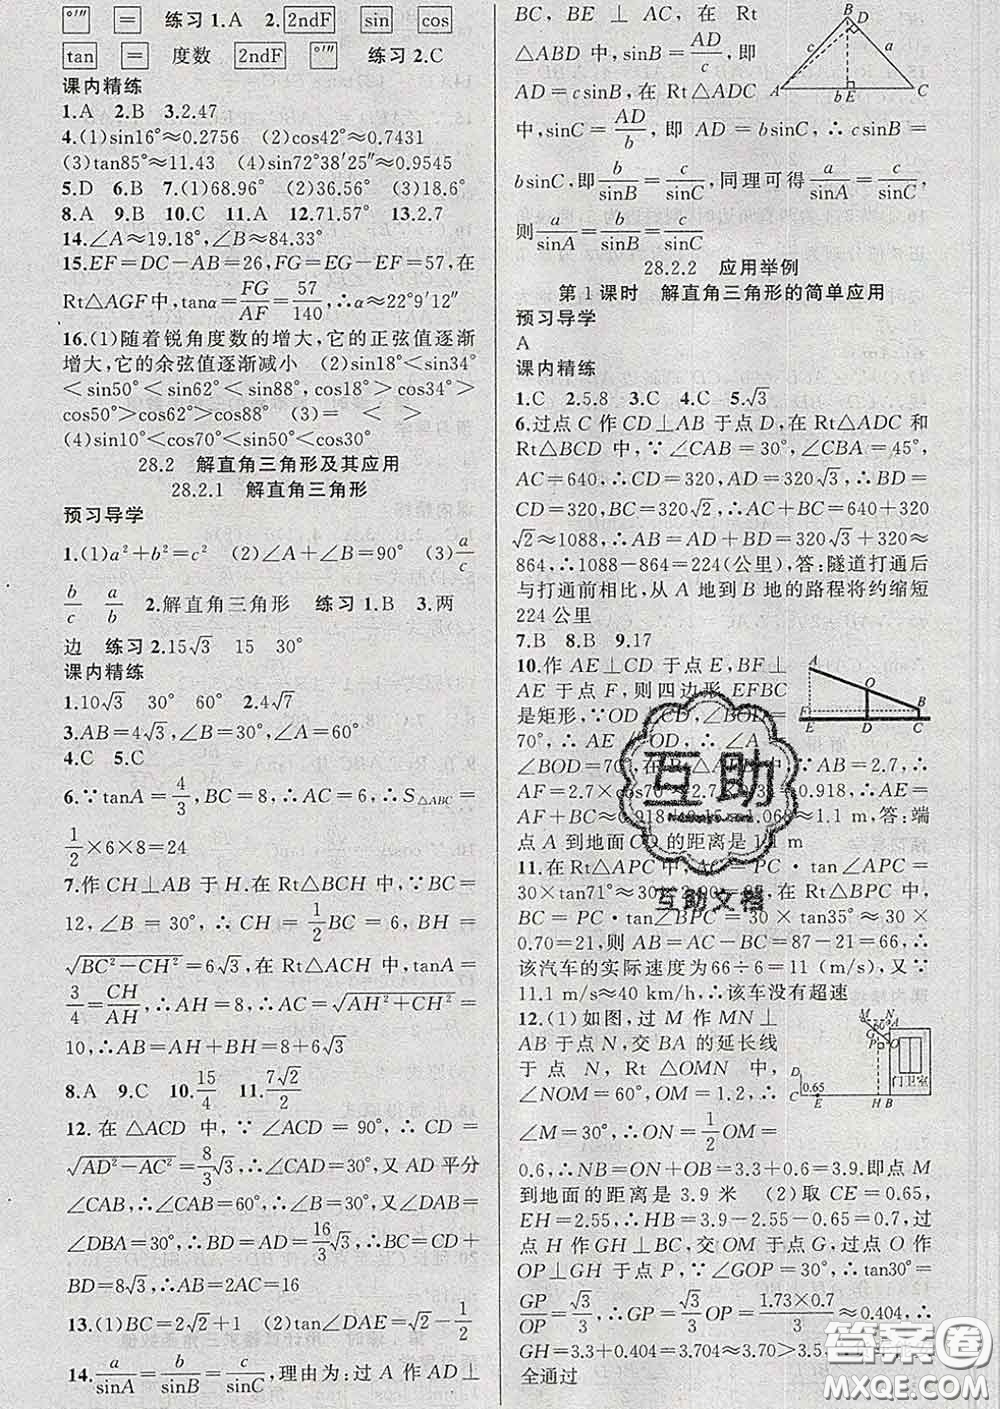 °′″ = 练习1.A 2. 2ndF sin cos
tan = 度数 2ndF °′″ 练习2.C
课内精练
1.A 2.B 3.2.47
4.(1)sin16°≈0.2756 (2)cos42°≈0.7431
(3)tan85°≈11.43 (4)sin72°38′25″≈0.9545
5.D 6.B 7.(1)68.96° (2)36.56° (3)18.6°
8.A 9.B 10.C 11.A 12.71.57° 13.2.7
14.∠A≈19.18°,∠B≈84.33°
15.EF=DC-AB=26,FG=EG-EF=57,在
Rt△AGF中,tanα=FG/AF=57/140,∴α≈22°9′12″
16.(1)随着锐角度数的增大,它的正弦值逐渐
增大,它的余弦值逐渐减小 (2)sin18°<sin34°
<sin50°<sin62°<sin88°,cos18°>cos34°>
cos50°>cos62°>cos88° (3)= < >
(4)sin10°<cos70°<sin50°<cos30°
28.2 解直角三角形及其应用
28.2.1 解直角三角形
预习导学
1.(1)a²+b²=c² (2)∠A+∠B=90° (3)a/c
b/c a/b 2.解直角三角形 练习1.B 3.两
边 练习2.15√3 15 30°
课内精练
1.10√3 30° 60° 2.4√7
3.AB=4√3,∠B=30°,∠A=60°
4.C 5.C
6.∵tanA=4/3,BC=8,∴AC=6,∴S△ABC=
1/2×6×8=24
7.作CH⊥AB于H.在Rt△BCH中,∵BC=
12,∠B=30°,∴CH=1/2BC=6,BH=
√(BC²-CH²)=6√3,在Rt△ACH中,tanA=
3/4=CH/AH,∴AH=8,∴AC=√(AH²+CH²)=
10,∴AB=AH+BH=8+6√3
8.A 9.C 10.15/4 11.7√2/2
12.在△ACD中,∵∠ACD=90°,∴CD=
√(AD²-AC²)=8/3√3,∴∠CAD=30°,又AD平分
∠CAB,∴∠CAB=60°,∴∠B=30°,∴∠DAB=
∠DBA=30°,∴BD=AD=16/3√3,∴BC=CD+
BD=8√3,∴AB=2AC=16
13.(1)BC=2√2+1 (2)tan∠DAE=√2-1/2
14.a/sinA=b/sinB=c/sinC,理由为:过A作AD⊥
BC,BE⊥AC,在Rt
△ABD中,sinB=AD/c,即
AD=csinB,在Rt△ADC
B D c a A b E C
中,sinC=AD/b,即AD=bsinC,∴csinB=
bsinC,即b/sinB=c/sinC,同理可得a/sinA=c/sinC,
则a/sinA=b/sinB=c/sinC
28.2.2 应用举例
第1课时 解直角三角形的简单应用
预习导学
A
课内精练
1.C 2.5.8 3.C 4.C 5.√3
6.过点C作CD⊥AB于点D,在Rt△ADC和
Rt△BCD中,∵∠CAB=30°,∠CBA=45°,
AC=640,∴CD=320,AD=320√3,∴BD=
CD=320,BC=320√2,∴AC+BC=640+320
√2≈1088,∴AB=AD+BD=320√3+320≈
864,∴1088-864=224(公里),答:隧道打通后
与打通前相比,从A地到B地的路程将约缩短
224公里
7.B 8.B 9.17
10.作AE⊥CD于点E,BF⊥
AE于点F,则四边形EFBC
是矩形,∵OD⊥CD,∠BOD=
70°,∴AE∥OD,∴∠A=
A O F B E D C
∠BOD=70°,在Rt△AFB中,∵AB=2.7,∴
AF=2.7×cos70°≈2.7×0.34=0.918,∴AE=
AF+BC≈0.918+0.15=1.068≈1.1 m,答:端
点A到地面CD的距离是1.1 m
11.在Rt△APC中,AC=PC·tan∠APC=
30×tan71°≈30×2.90=87,在Rt△BPC中,
BC=PC·tan∠BPC=30×tan35°≈30×
0.70=21,则AB=AC-BC=87-21=66,∴
该汽车的实际速度为66÷6=11(m/s),又∵
11.1 m/s≈40 km/h,∴该车没有超速
12.(1)如图,过M作MN⊥
AB于点N,交BA的延长线
于点N,Rt△OMN中,
∠NOM=60°,OM=1.2,∴
∠M=30°,∴ON=1/2OM=
M N A G P O D C 0.65 E H B 门卫室
0.6,∴NB=ON+OB=3.3+0.6=3.9,即点M
到地面的距离是3.9米 (2)取CE=0.65,
EH=2.55,∴HB=3.9-2.55-0.65=0.7,过
点H作GH⊥BC,交OM于点G,过点O作
OP⊥GH于点P,∵∠GOP=30°,∴tan30°=
GP/OP=√3/3,∴GP=√3/3OP=1.73×0.7/3≈0.404,∴
GH=3.3+0.404=3.704≈3.70>3.5,
全通过
互助
互助文档
答案圈
MXQE.COM